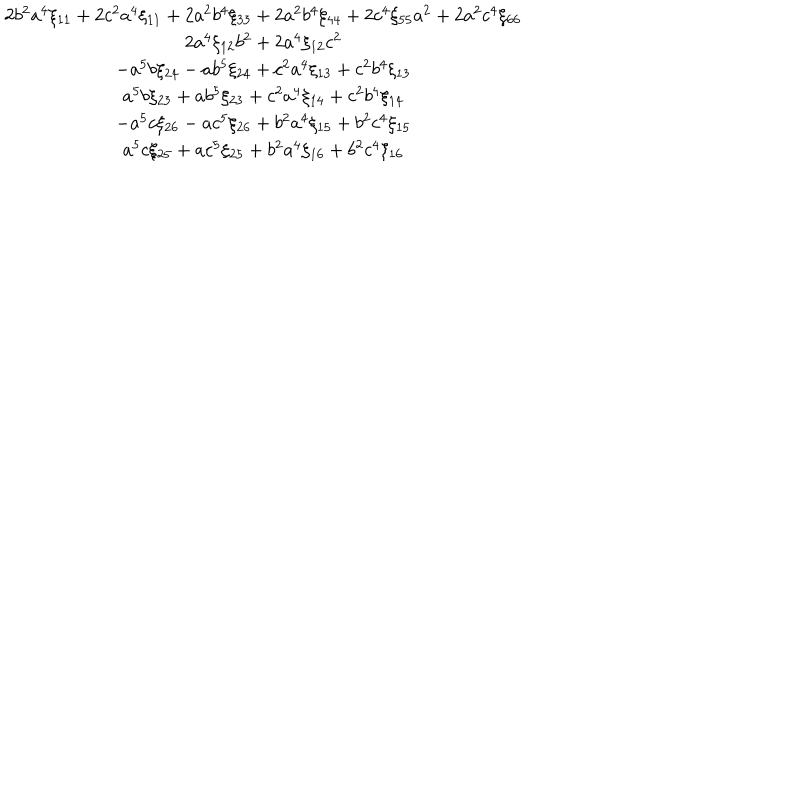 2b²a⁴ξ₁₁ + 2c²a⁴ξ₁₁ + 2a²b⁴ξ₃₃ + 2a²b⁴ξ₄₄ + 2c⁴ξ₅₅a² + 2a²c⁴ξ₆₆
2a⁴ξ₁₂b² + 2a⁴ξ₁₂c²
−a⁵bξ₂₄ − ab⁵ξ₂₄ + c²a⁴ξ₁₃ + c²b⁴ξ₁₃
a⁵bξ₂₃ + ab⁵ξ₂₃ + c²a⁴ξ₁₄ + c²b⁴ξ₁₄
−a⁵cξ₂₆ − ac⁵ξ₂₆ + b²a⁴ξ₁₅ + b²c⁴ξ₁₅
a⁵cξ₂₅ + ac⁵ξ₂₅ + b²a⁴ξ₁₆ + b²c⁴ξ₁₆